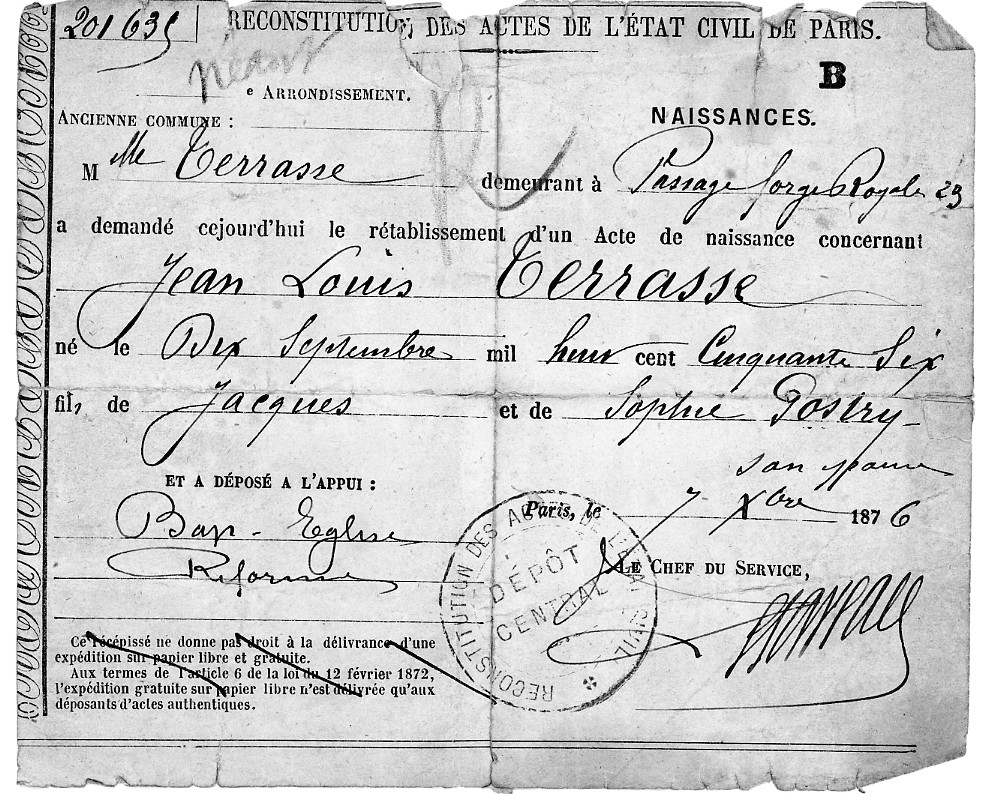 201635 RECONSTITUTION DES ACTES DE L'ÉTAT CIVIL DE PARIS.
néant
e ARRONDISSEMENT.
B
ANCIENNE COMMUNE :
NAISSANCES.
M lle Terrasse demeurant à Passage forge Royale 23
a demandé cejourd'hui le rétablissement d'un Acte de naissance concernant
Jean Louis Terrasse
né le Dix Septembre mil huit cent Cinquante Six
fils de Jacques et de Sophie Postry
son épouse
ET A DÉPOSÉ A L'APPUI :
Paris, le 7 Xbre 1876
Bap - Eglise
Réformée
LE CHEF DU SERVICE,
RECONSTITUTION DES ACTES DE L'ÉTAT CIVIL
DÉPÔT
CENTRAL
Ce récépissé ne donne pas droit à la délivrance d'une
expédition sur papier libre et gratuite.
Aux termes de l'article 6 de la loi du 12 février 1872,
l'expédition gratuite sur papier libre n'est délivrée qu'aux
déposants d'actes authentiques.